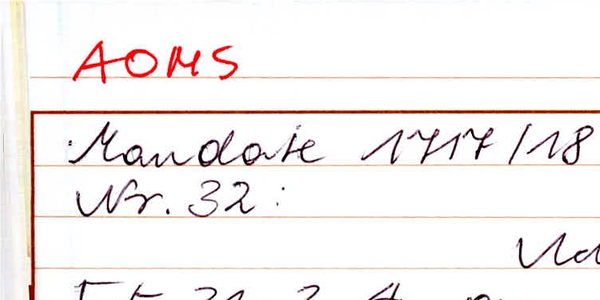 AOMS
Mandate 1717/18
Nr. 32: